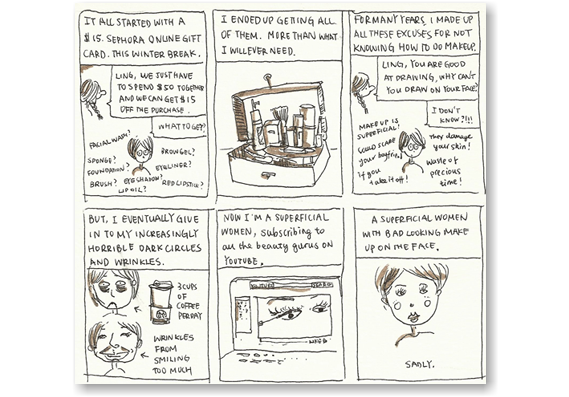 IT ALL STARTED WITH A
$15. SEPHORA ONLINE GIFT
CARD. THIS WINTER BREAK.
LING, WE JUST HAVE
TO SPEND $50 TOGETHER
AND WE CAN GET $15
OFF THE PURCHASE.
WHAT TO GET?
FACIAL WASH?
SPONGE?
FOUNDATION?
BRUSH?
EYE SHADOW?
LIP OIL?
BROW GEL?
EYELINER?
RED LIPSTICK?
I ENDED UP GETTING ALL
OF THEM. MORE THAN WHAT
I WILL EVER NEED.
FOR MANY YEARS, I MADE UP
ALL THESE EXCUSES FOR NOT
KNOWING HOW TO DO MAKEUP.
LING, YOU ARE GOOD
AT DRAWING, WHY CAN'T
YOU DRAW ON YOUR FACE?
I DON'T
KNOW?!!!
MAKE UP IS
SUPERFICIAL!
Could SCARE
your boyfriend
if you
take it off!
They damage
your skin!
Waste of
precious
time!
BUT, I EVENTUALLY GIVE
IN TO MY INCREASINGLY
HORRIBLE DARK CIRCLES
AND WRINKLES.
3 CUPS
OF
COFFEE
PER DAY
WRINKLES
FROM
SMILING
TOO MUCH
NOW I'M A SUPERFICIAL
WOMEN, subscribing to
all the beauty gurus on
YOUTUBE.
YOUTUBE
A SUPERFICIAL WOMEN
WITH BAD LOOKING MAKE
UP ON THE FACE.
SADLY.